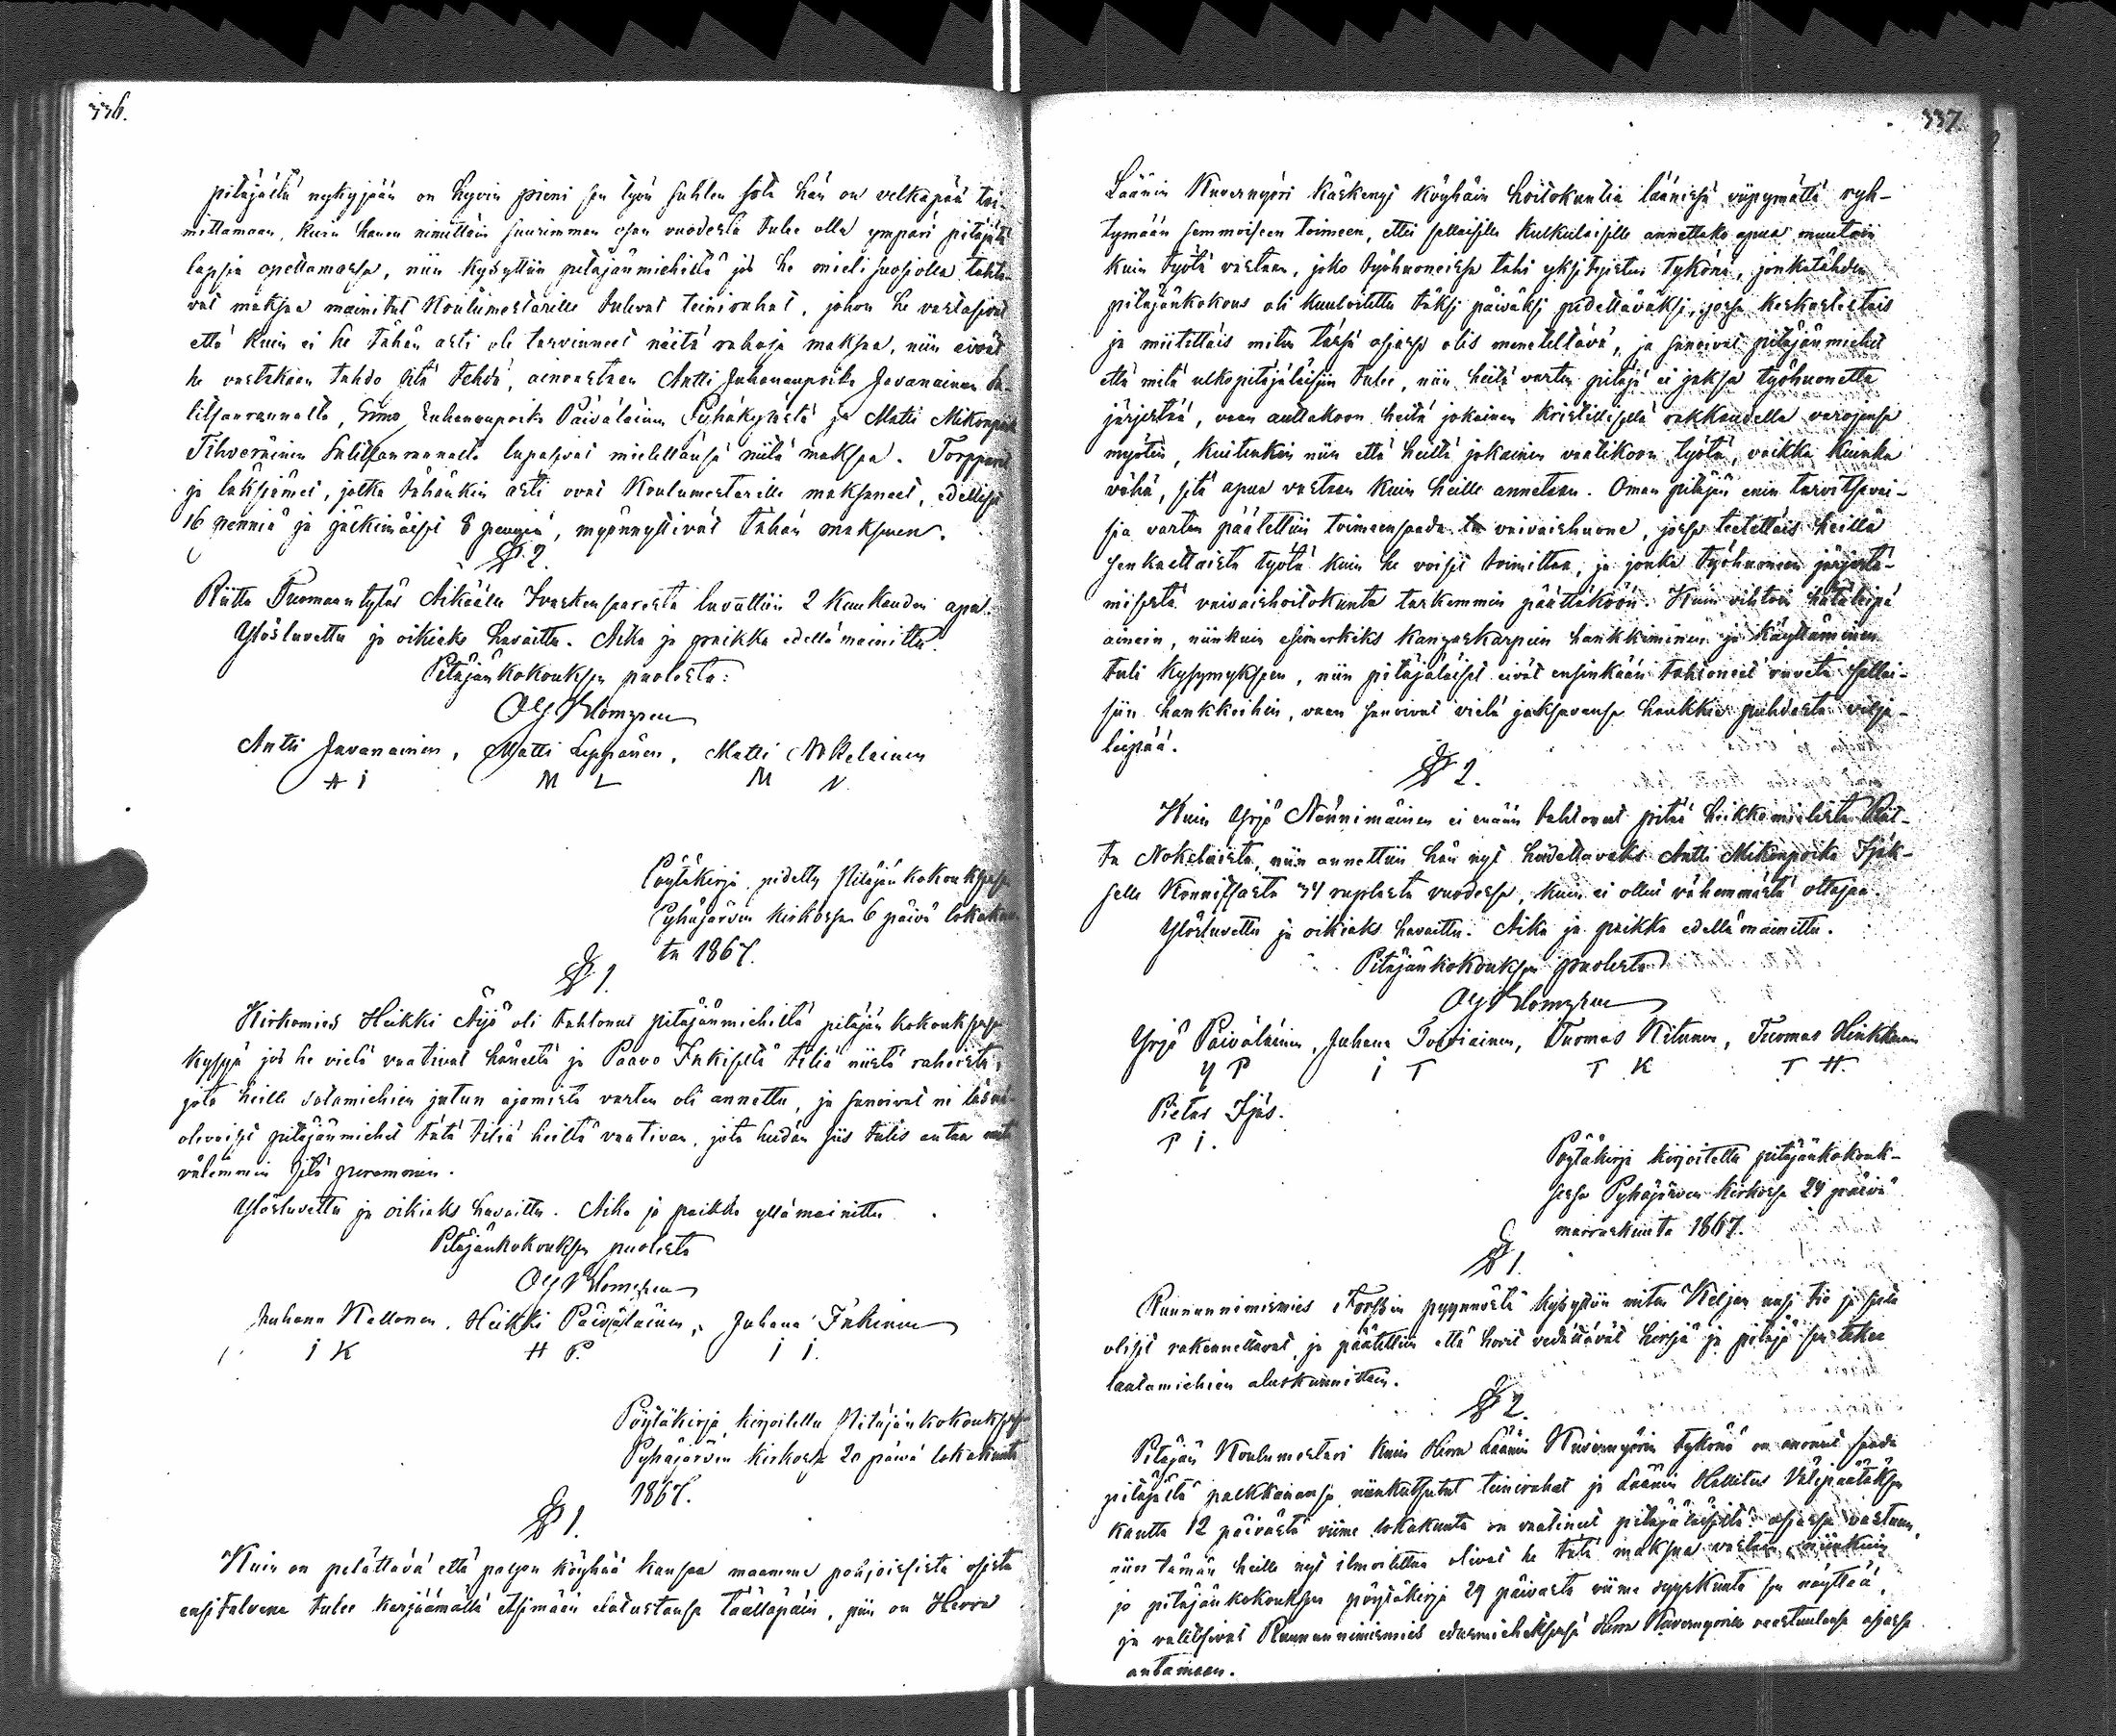 336.
pitäjältä nykyjään on hyvin pieni sen työn suhteen jota hän on velkapää toi-
mittamaan, kuin hänen nimittäin suurimman osan vuodesta tulee olla ympäri pitäjätä
lapsia opettamassa, niin kysyttiin pitäjänmiehiltä jos he mieli suosiolla tahto-
vat maksaa mainitut Koulumestarille tulevat teinirahat, johon he vastasivat
että kuin ei he tähän asti ole tarvinneet näitä rahoja maksaa, niin eivät
he vastakaan tahdo sitä tehdä, ainoastaan Antti Juhananpoika Javanainen Sa-
litsanrannalta, Simo Juhananpoika Päiväläinen Pyhäkylästä ja Matti Mikonpoika
Tihveräinen Salitsanrannalta lupasivat mielellänsä niitä maksaa. Torpparit
ja läksiämet, jotka tähänkin asti ovat Koulumestarille maksaneet, edelliset
16 penniä ja jälkimäiset 8 penniä, myönnyttivät tähän maksuun.
§ 2.
Riitta Tuomaantytär Äikäälle Ivaskensaaresta luvattiin 2 kuukauden apu.
Ylösluettu ja oikiaks havaittu. Aika ja paikka edellämainittu.
Pitäjänkokouksen puolesta:
Antti Javanainen, Matti Leppänen, Matti Nokelainen
A I M L M N
Pöytäkirja pidetty Pitäjänkokouksessa
Pyhäjärven kirkossa 6 päivä lokakuu-
ta 1867.
§ 1.
Kirkomies Heikki Äijö oli tahtonut pitäjänmiehiltä pitäjän kokouksessa
kysyä jos he vielä vaativat häneltä ja Paavo Inkiseltä tiliä niistä rahoista,
joita heille salamiehien jutun ajamista varten oli annettu, ja sanoivat ni läsnä-
olevaiset pitäjänmiehet tätä tiliä heiltä vaativan, jota heidän siis tulis antaa mitä
välemmin sitä paremmin.
Ylösluettu ja oikiaks havaittu. Aika ja paikka yllämainittu.
Pitäjänkokouksen puolesta
Juhana Kallonen, Heikki Päiväläinen, Juhana Inkinen
I K H P. I I.
Pöytäkirja kirjoitettu Pitäjänkokouksessa
Pyhäjärven kirkossa 20 päivä lokakuuta
1867.
§ 1.
Kuin on pelättävä että paljon köyhää kansaa maamme pohjoisista osista
ensitalvena tulee kerjäämällä etsimään elatustansa täälläpäin, niin on Herra
337.
Läänin Kuvernyöri käskenyt köyhäin hoitokuntia läänissä viipymättä ryh-
tymään semmoiseen toimeen, ettei sellaisille kulkulaisille annettako apua muutoin
kuin työtä vastaan, joko työhuoneissa tahi yksityisten tykönä, jonkatähden
pitäjänkokous oli kuuloitettu täksi päiväksi pidettäväksi, jossa keskusteltais
ja mietittäis miten tässä asiassa olis meneteltävä, ja sanoivat pitäjänmiehet
että mitä ulkopitäjäläisiin tulee, niin heitä varten pitäjä ei jaksa työhuonetta
järjestää, vaan auttakoon heitä jokainen kristillisellä rakkaudella varojensa
myöten, kuitenkin niin että heiltä jokainen vaatikoon työtä, vaikka kuinka
vähä, sitä apua vastaan kuin heille annetaan. Oman pitäjän enin tarvitsevai-
sia varten päätettiin toimeensaada vaivaishuone, jossa teetettäis heillä
senkaltaista työtä kuin he voisit toimittaa, ja jonka työhuoneen järjestä-
misestä vaivaishoitokunta tarkemmin päättäköön. Kuin vihdoin hätäleipä
ainein, niinkuin esimerkiks kangaskarpeen hankkiminen ja käyttäminen
tuli kysymykseen, niin pitäjäläiset eivät ensinkään tahtoneet ruveta sellai-
siin hankkeihin, vaan sanoivat vielä jaksavansa hankkia puhdasta vilja-
leipää.
§ 2.
Kuin Yrjö Nännimäinen ei enään tahtonut pitää heikkomielistä Riit-
ta Nokelaista, niin annettiin hän nyt hoidettavaks Antti Mikonpoika Ijäk-
selle Konnitsasta 34 ruplasta vuodessa, kuin ei ollut vähemmästä ottajaa.
Ylösluettu ja oikiaks havaittu. Aika ja paikka edellämainittu.
Pitäjänkokouksen puolesta
Yrjö Päiväläinen, Juhana Toiviainen, Tuomas Kitunen, Tuomas Hinkkanen
Y P I T T K T H.
Pietar Ijäs.
P I.
Pöytäkirja kirjoitettu pitäjänkokouk-
sessa Pyhäjärven kirkossa 24 päivä
marraskuuta 1867.
§ 1.
Ruununnimismies Forssin pyynnöstä kysyttiin miten Keljan uusi tie ja silta
olisit rakennettavat, ja päätettiin että hovit vedättävät hirsiä ja pitäjä sen tekee
laatamiehien aluskunnittain.
§ 2.
Pitäjän Koulumestari kuin Herra Läänin Kuvernyörin tykönä on anonut saada
pitäjältä palkkanansa niinkutsutut teinirahat ja Läänin Hallitus Välipäätöksen
kautta 12 päivästä viime lokakuuta on vaatinut pitäjäläisiltä asiassa vastuun,
niin tämän heille nyt ilmoitettua olivat he tätä maksua vastaan, niinkuin
jo pitäjänkokouksen pöytäkirja 29 päivästä viime syyskuuta sen näyttää,
ja valitsivat Ruununnimismies edusmieheksensä Herra Kuvernyörille vastuulausa asiassa
antamaan.